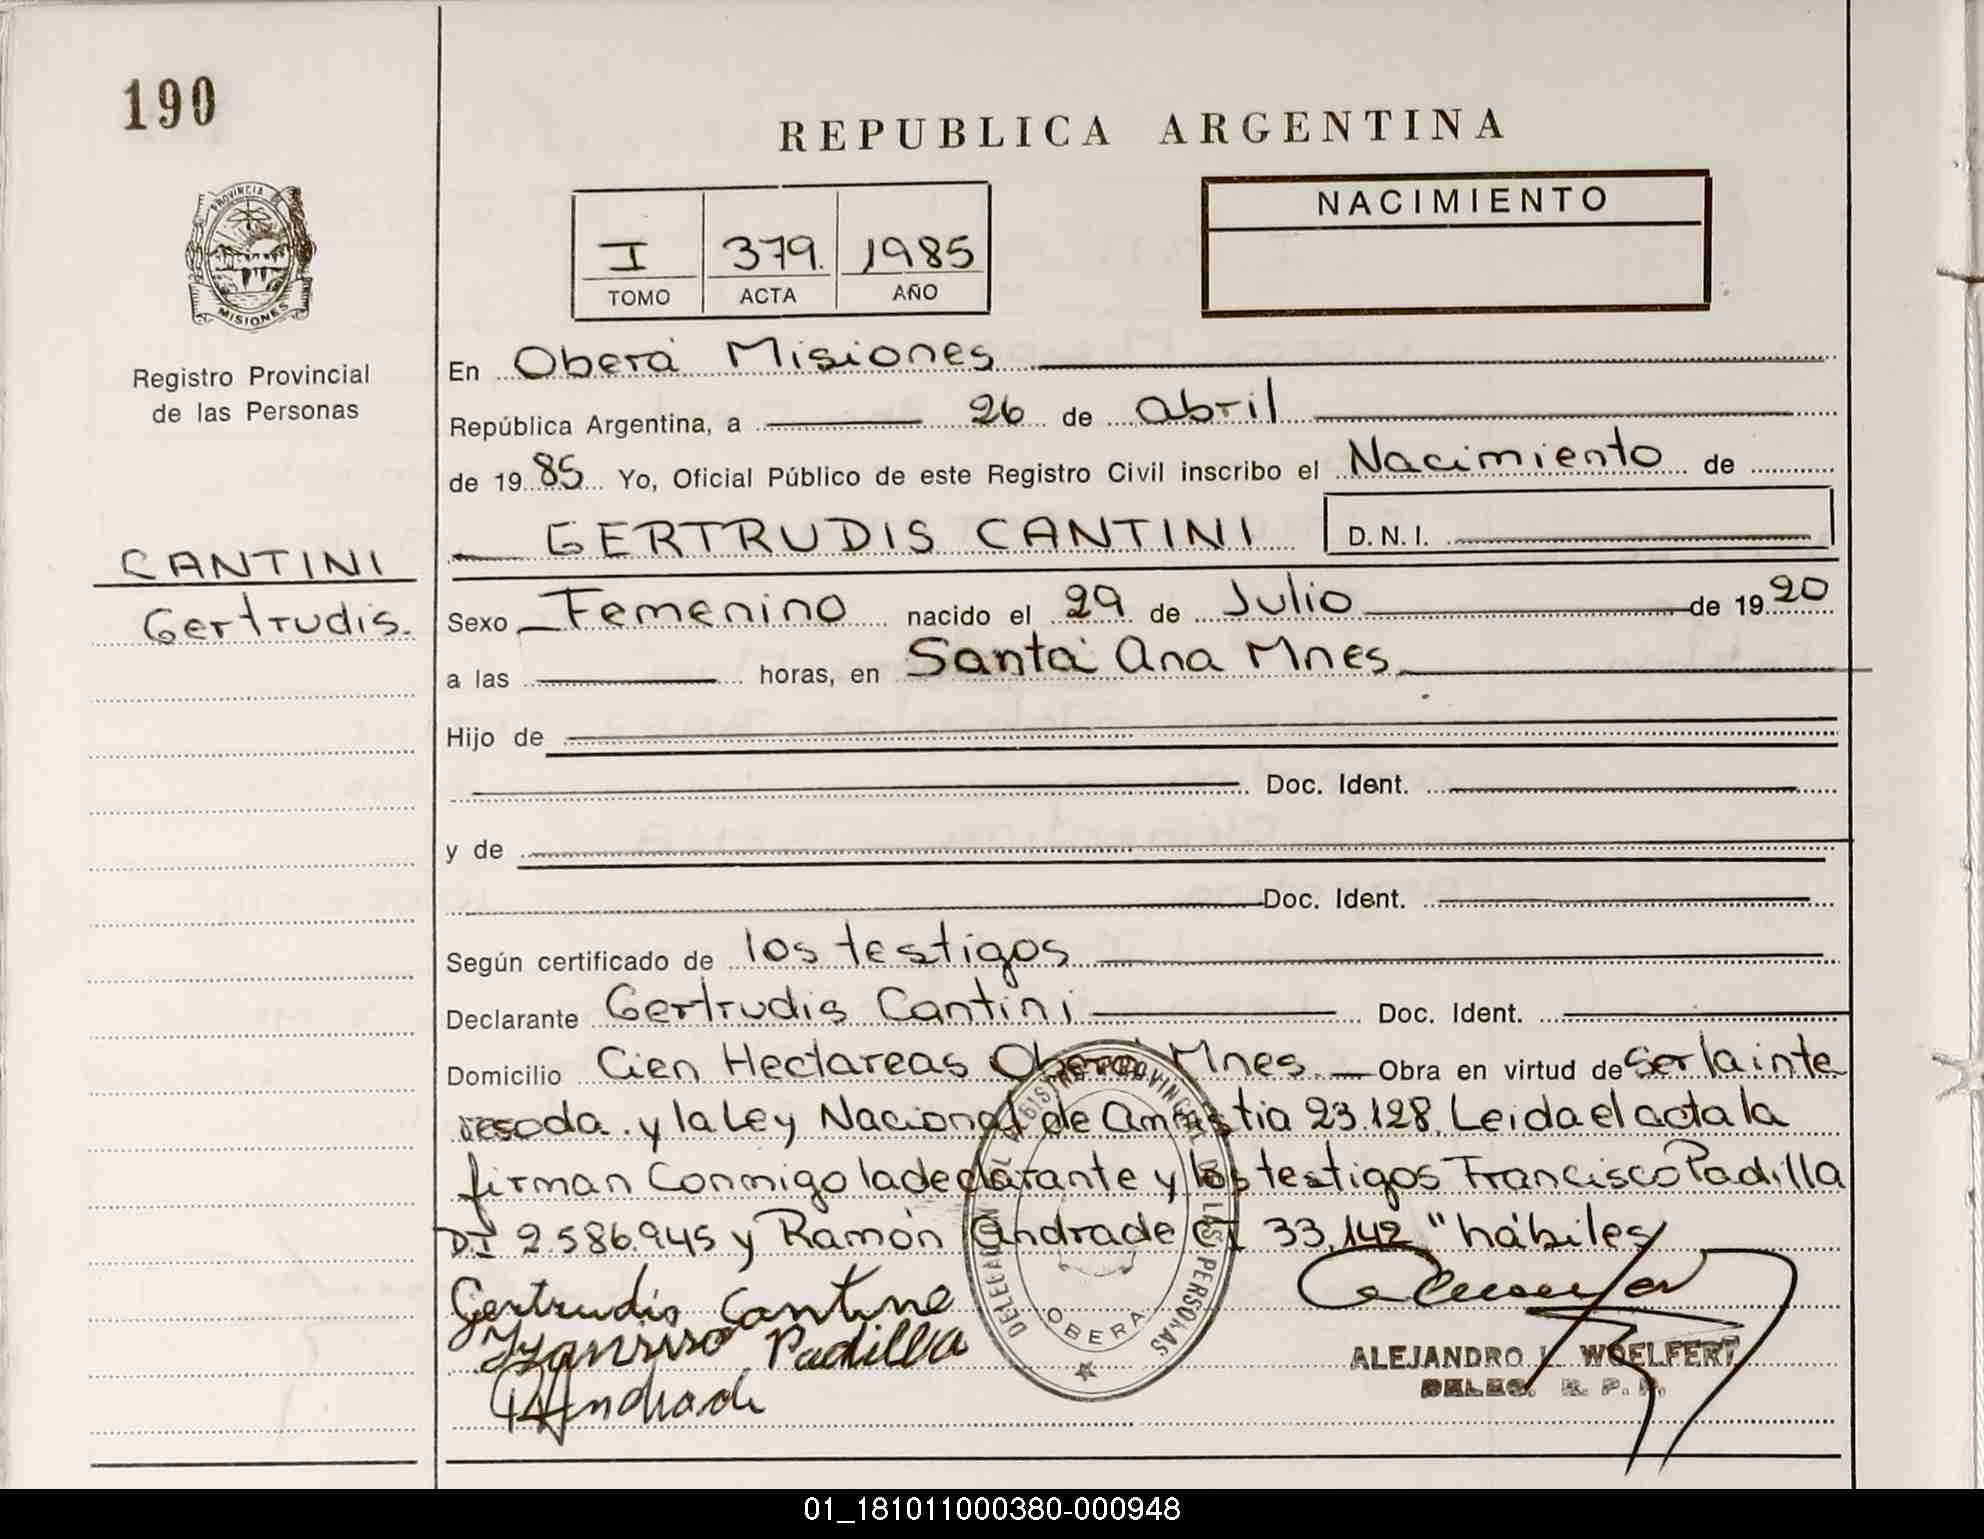 190
REPUBLICA ARGENTINA
PROVINCIA
MISIONES
Registro Provincial
de las Personas
I 379. 1985
TOMO ACTA AÑO
NACIMIENTO
En Oberá Misiones
República Argentina, a 26 de abril
de 1985 Yo, Oficial Público de este Registro Civil inscribo el Nacimiento de
GERTRUDIS CANTINI D.N.I.
CANTINI
Gertrudis.
Sexo Femenino nacido el 29 de Julio de 1920
a las horas, en Santa Ana Mnes
Hijo de
Doc. Ident.
y de
Doc. Ident.
Según certificado de los testigos
Declarante Gertrudis Cantini Doc. Ident.
Domicilio Cien Hectareas Oberá Mnes. Obra en virtud de ser la inte
resada. y la Ley Nacional de Amnistia 23.128. Leida el acta la
firman Conmigo la declarante y los testigos Francisco Padilla
DI 2.586.945 y Ramón Andrade CI 33.142 "hábiles
Gertrudis Cantine
Padilla
Andrade
DELEGACION REGISTRO PROVINCIAL DE LAS PERSONAS
OBERA
ALEJANDRO L. WOELFERT
DELEG. R. P. P.
01_181011000380-000948